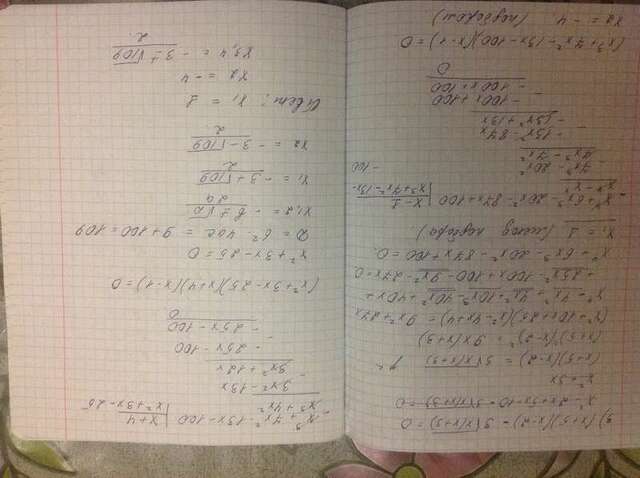 3) (x+5)(x-2) - 3√x(x+3) = 0
x² - 2x + 5x - 10 - 3√x(x+3) = 0
x² + 3x
(x+5)(x-2) = 3√x(x+3)
(x+5)²(x-2)² = 9x(x+3)
(x²+10x+25)(x²-4x+4) = 9x²+27x
+ 25x² - 100x + 100 - 9x² - 27x = 0
x⁴ + 6x³ - 20x² - 87x + 100 = 0
x₁ = 1 (метод подбора).
x⁴ + 6x³ - 20x² - 87x + 100 | x - 1
x⁴ - x³ x³ + 7x² - 13x - 100
7x³ - 20x²
7x³ - 7x²
-13x² - 87x
-13x² + 13x
-100x + 100
-100x + 100
0
(x³ + 7x² - 13x - 100)(x - 1) = 0
x₂ = -4. (подбором)
x³ + 7x² - 13x - 100 | x + 4
x³ + 4x² x² + 3x - 25
3x² - 13x
3x² + 12x
- 25x - 100
- 25x - 100
0
(x² + 3x - 25)(x + 4)(x - 1) = 0
x² + 3x - 25 = 0
D = b² - 4ac = 9 + 100 = 109
x₁,₂ = - b ± √D
2a
x₁ = - 3 + √109
2
x₂ = - 3 - √109
2
Ответ: x₁ = 1
x₂ = -4
x₃,₄ = - 3 ± √109
2